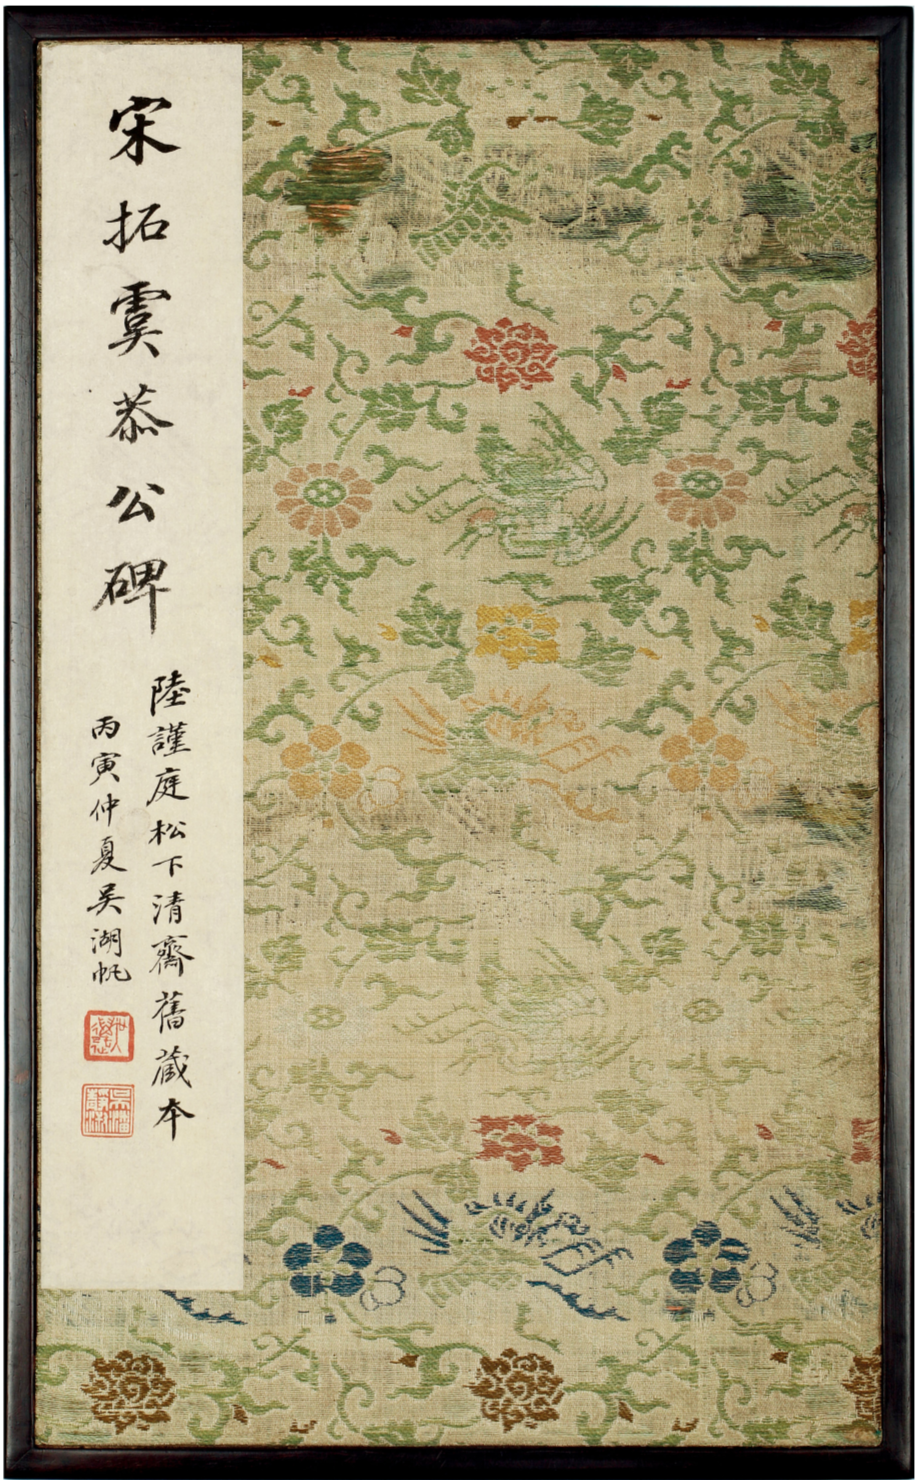 宋拓虞恭公碑
陸謹庭松下清齋舊藏本
丙寅仲夏吳湖帆